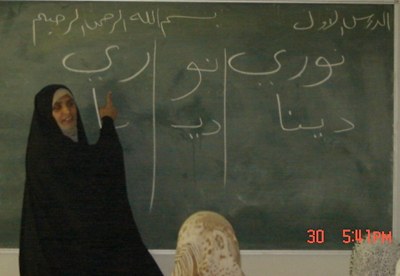 الدرس الاول
بسم الله الرحمن الرحيم
نوري | نو | ري
دينا | ديـ | نا
30 5:41PM